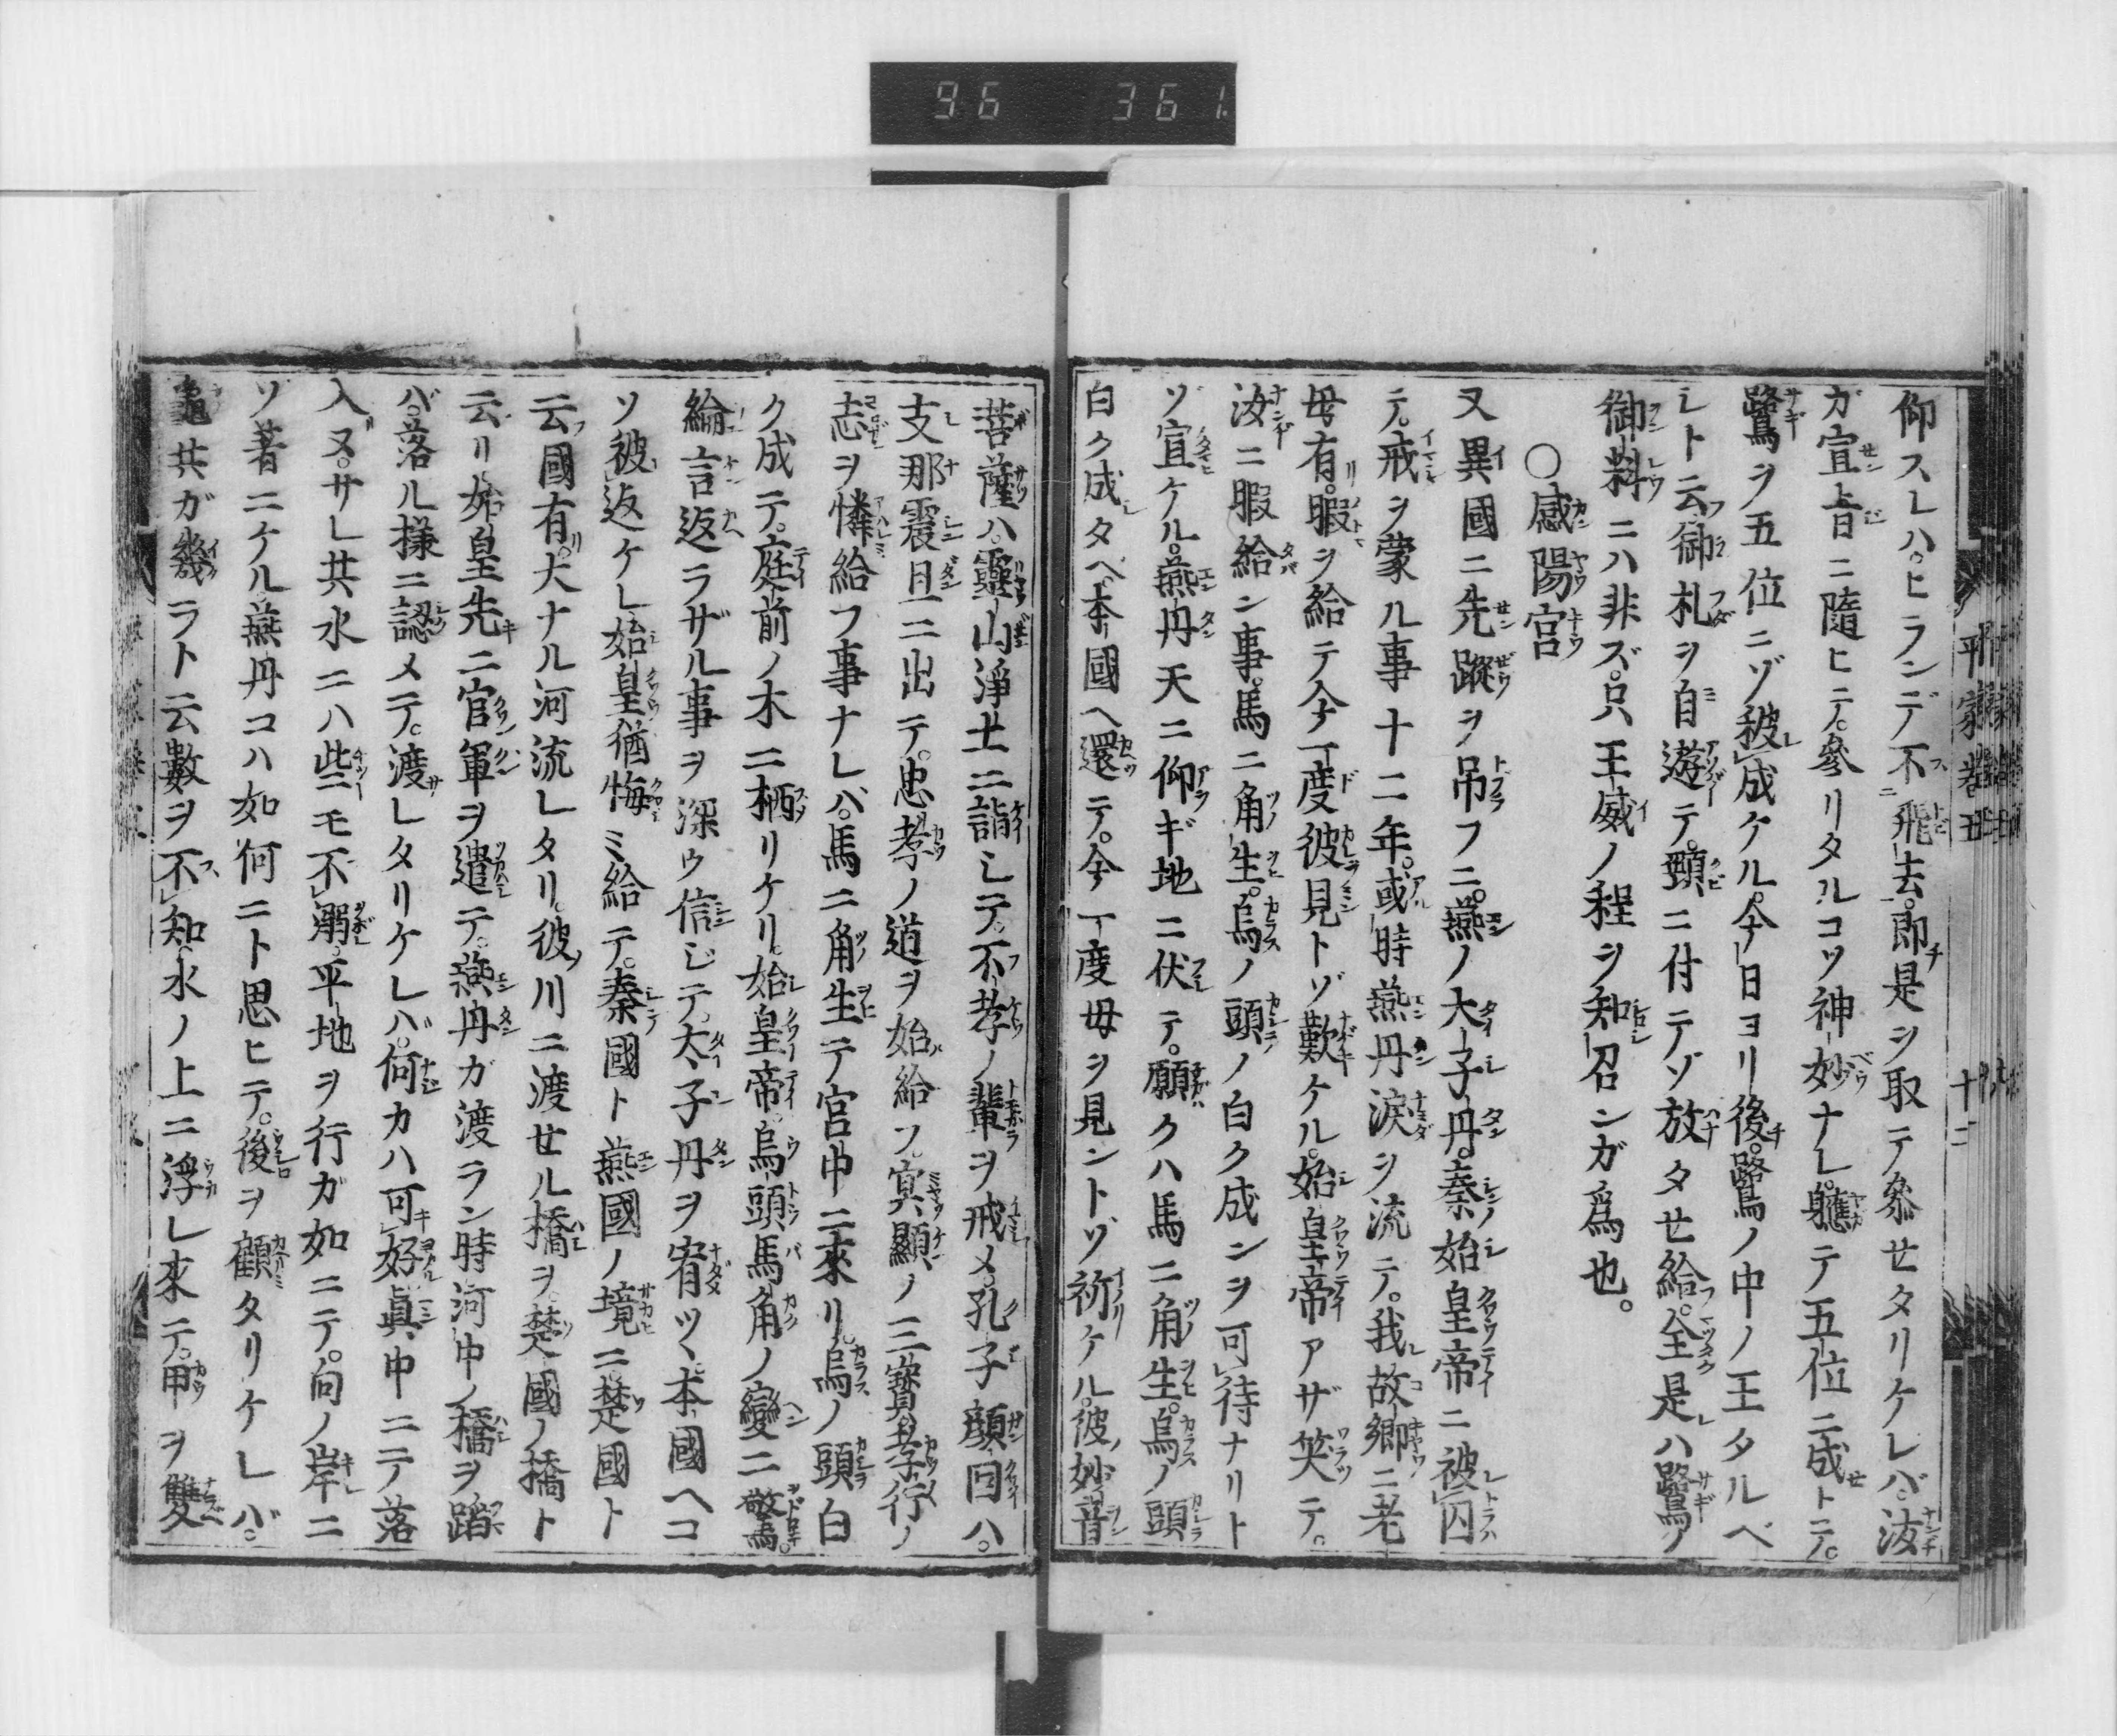 96 361
平家卷五 十二
仰スレハ。ヒランデ不飛去。即是ヲ取テ參セタリケレバ。汝
ガ宣旨ニ隨ヒテ。參リタルコソ神妙ナレ。軈テ五位ニ成トテ。
鷺ヲ五位ニゾ被成ケル。今日ヨリ後。鷺ノ中ノ王タルベ
シト云御札ヲ自遊テ。頸ニ付テゾ放タセ給。全是ハ鷺ノ
御料ニハ非ズ。只王威ノ程ヲ知召ンガ爲也。
〇感陽宮
又異國ニ先蹤ヲ吊フニ。燕ノ大子丹。秦始皇帝ニ被囚
テ。戒ヲ蒙ル事十二年。或時燕丹淚ヲ流テ。我故鄉ニ老
母有。暇ヲ給テ今一度彼見トゾ歎ケル。始皇帝アザ笑テ。
汝ニ暇給ン事。馬ニ角生。烏ノ頭ノ白ク成ンヲ可待ナリト
ゾ宣ケル。燕丹天ニ仰ギ地ニ伏テ。願クハ馬ニ角生。烏ノ頭
白ク成タベ。本國ヘ還テ。今一度母ヲ見ントゾ祈ケル。彼妙音
菩薩ハ。靈山淨土ニ詣シテ。不孝ノ輩ヲ戒メ。孔子顏回ハ。
支那震旦ニ出テ。忠孝ノ道ヲ始給フ。冥顯ノ三寶孝行ノ
志ヲ憐給フ事ナレバ。馬ニ角生テ宮中ニ來リ。烏ノ頭白
ク成テ。庭前ノ木ニ栖リケリ。始皇帝。烏頭馬角ノ變ニ驚。
綸言返ラザル事ヲ深ウ信ジテ。太子丹ヲ宥ツヽ本國ヘコ
ソ被返ケレ。始皇猶悔ミ給テ。秦國ト燕國ノ境ニ楚國ト
云國有。大ナル河流レタリ。彼川ニ渡セル橋ヲ。楚國ノ橋ト
云リ。始皇先ニ官軍ヲ遣テ。燕丹ガ渡ラン時河中ノ橋ヲ蹈
バ。落ル様ニ認メテ。渡レタリケレバ。何カハ可好。眞中ニテ落
入ヌ。サレ共水ニハ些ニモ不溺。平地ヲ行ガ如ニテ。向ノ岸ニ
ソ著ニケル。燕丹コハ如何ニト思ヒテ。後ヲ顧タリケレバ。
龜共ガ幾ラト云數ヲ不知。水ノ上ニ浮レ來テ。甲ヲ雙